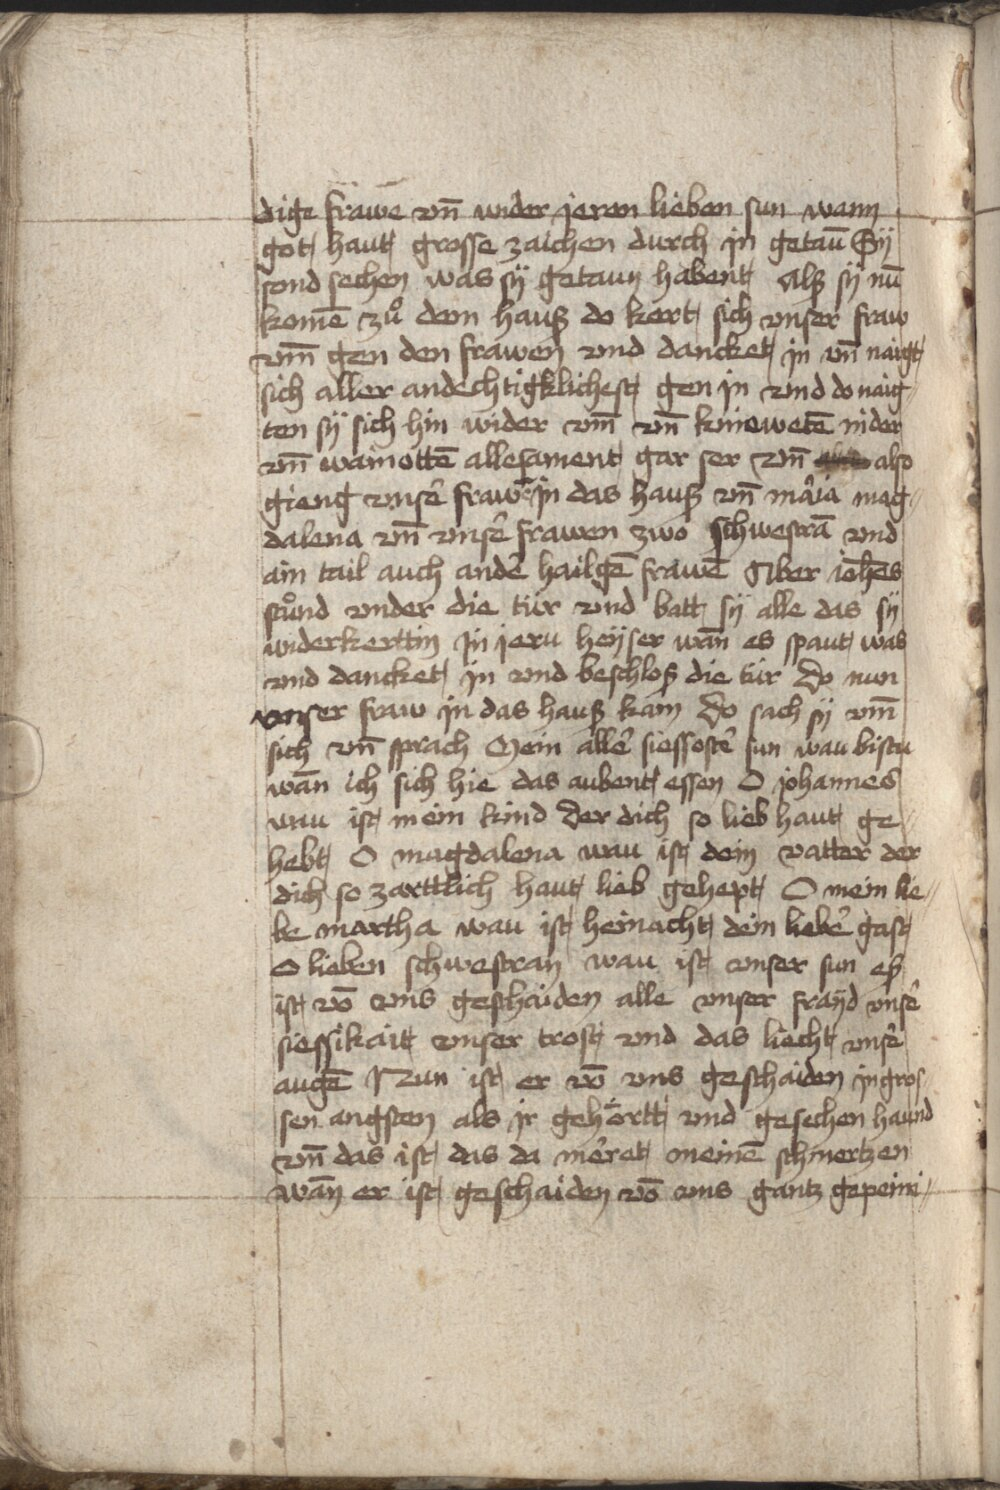 dige frawe vn̄ wider jeren lieben sun wann
got haut grosse zaichen durch in getaū Sÿ
sond sechen was sÿ getaun habent Alß sÿ nū
komē zů dem hauß do kert sich vnser fraw
vm̄ gen den frawen vnd dancket in vn̄ naigt
sich aller andechtigklichest gen in vnd do naig⸗
ten sÿ sich hin wider vm̄ vn̄ kniewetē nider
vn̄ wainottē allesament gar ser vn̄ also
gieng vnser̄ fraw in das hauß vn̄ mar̄ia mag⸗
dalena vn̄ vnser̄ frawen zwo schwestrā vnd
ain tail auch ander̄ hailgē frawē Aber ioh̄es
stůnd vnder die tür vnd batt sÿ alle das sÿ
widerkerttin in jeru heÿser wān es spaut was
vnd dancket in vnd beschloß die tür Do nun
vnser fraw in das hauß kam Do sach sÿ vm̄
sich vn̄ sprach Mein aller̄ siessoster̄ sun wau bistu
wān ich sich hie das aubent essen O johannes
wau ist mein kind Der dich so lieb haut ge⸗
hebt O magdalena wau ist dein vatter der
dich so zarttlich haut lieb gehept O mein lie⸗
be martha wau ist heinacht dein lieber̄ gast
O lieben schwestran wau ist vnser sun eß
ist vō vns geschaiden alle vnser fraÿd vnser̄
siessikait vnser trost vnd das liecht vnser̄
augē Nun ist er vō vns geschaiden in gros⸗
sen angsten als ir gehörtt vnd gesechen haund
vn̄ das ist das da meret meinē schmertzen
wān er ist geschaiden vō vns gantz gepeini⸗